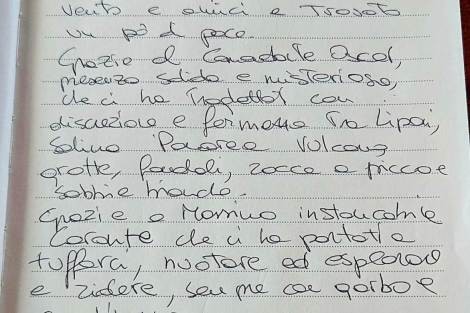 vento e amici e trovato
un pò d pace.
Grazie al Comandante Oscar,
presenza solida e misteriosa,
che ci ha con
discrezione e fermezza Tra Lipari,
Salina Panarea Vulcano,
grotte, fondali, rocce a picco e
sabbie
Grazie a instancabile
Caronte che ci ha portati a
tuffarci, nuotare ed esplorare
e ridere, sempre con garbo e